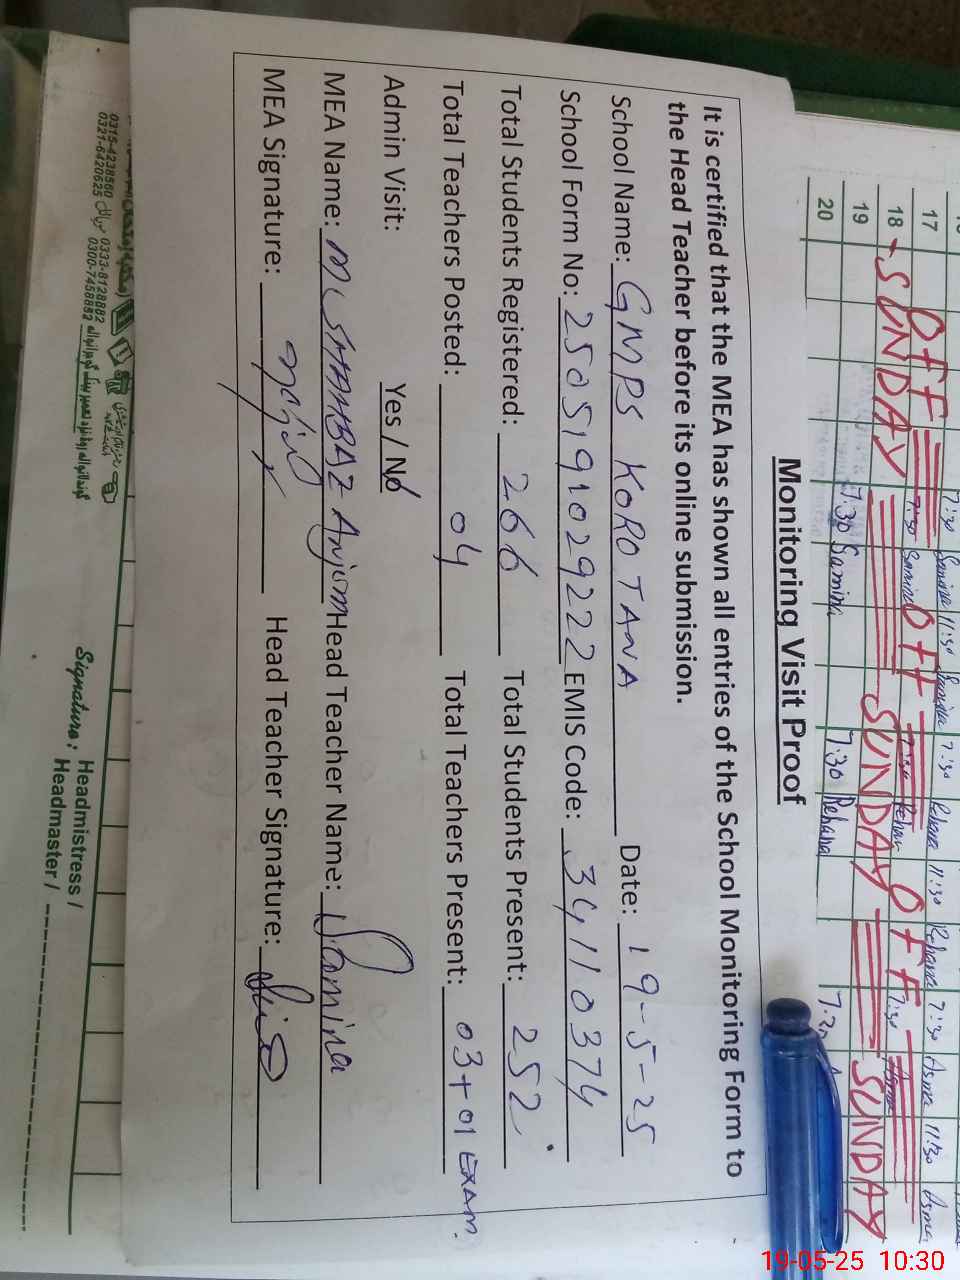 17
18
19
20
OFF
OFF
OFF
SUNDAY
SUNDAY
SUNDAY
7:30 Samina 11:30
7:30 Rehana 11:30 Rehana 7:30 Asma 11:30 Asma
7:30 Samina
7:30 Rehana
Monitoring Visit Proof
It is certified that the MEA has shown all entries of the School Monitoring Form to
the Head Teacher before its online submission.
School Name: GMPS KOROTANA Date: 19-5-25
School Form No: 2505191029222 EMIS Code: 34110374
Total Students Registered: 266 Total Students Present: 252
Total Teachers Posted: 04 Total Teachers Present: 03+01 EXAM.
Admin Visit: Yes / No
MEA Name: M SHAHBAZ Anjum Head Teacher Name: Samina
MEA Signature: Head Teacher Signature:
0315-4238560 0333-8128882
0321-6420625 0300-7458882
Signature: Headmistress /
Headmaster /
19-05-25 10:30